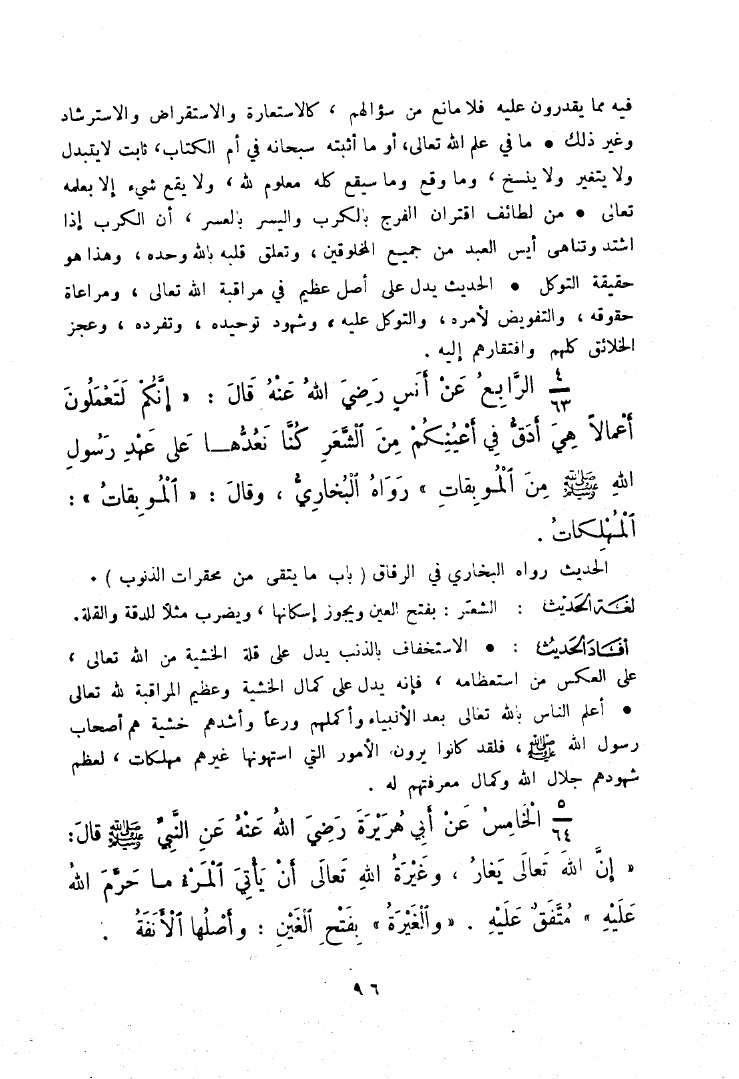 فيه مما يقدرون عليه فلا مانع من سؤالهم ، كالاستعارة والاستقراض والاسترشاد
وغير ذلك • ما في علم الله تعالى، أو ما أثبته سبحانه في أم الكتاب، ثابت لايتبدل
ولا يتغير ولا ينسخ ، وما وقع وما سيقع كله معلوم لله ، ولا يقع شيء إلا بعلمه
تعالى • من لطائف اقتران الفرج بالكرب واليسر بالعسر ، أن الكرب إذا
اشتد وتناهى أيس العبد من جميع المخلوقين ، وتعلق قلبه بالله وحده ، وهذا هو
حقيقة التوكل • الحديث يدل على أصل عظيم في مراقبة الله تعالى ، ومراعاة
حقوقه ، والتفويض لأمره ، والتوكل عليه ، وشهود توحيده ، وتفرده ، وعجز
الخلائق كلهم وافتقارهم إليه .
٤/٦٣ الرَّابِعُ عَنْ أَنَسٍ رَضِيَ اللهُ عَنْهُ قَالَ : « إِنَّكُمْ لَتَعْمَلُونَ
أَعْمالاً هِيَ أَدَقُّ في أَعْيُنِكُمْ مِنَ ٱلشَّعَرِ كُنَّا نَعُدُّهـا عَلى عَهْدِ رَسُولِ
اللهِ ﷺ مِنَ ٱلْمُوبِقاتِ » رَوَاهُ ٱلْبُخارِيُّ ، وقالَ : « ٱلْمُوبِقاتُ » :
ٱلْمُهْلِكاتُ .
الحديث رواه البخاري في الرقاق ( باب ما يتقى من محقرات الذنوب ) .
لغة الحديث : الشعَر : بفتح العين ويجوز إسكانها ، ويضرب مثلاً للدقة والقلة.
أفاد الحديث : • الاستخفاف بالذنب يدل على قلة الخشية من الله تعالى ،
على العكس من استعظامه ، فإنه يدل على كمال الخشية وعظيم المراقبة لله تعالى
• أعلم الناس بالله تعالى بعد الأنبياء وأكملهم ورعاً وأشدهم خشية هم أصحاب
رسول الله ﷺ ، فلقد كانوا يرون الأمور التي استهونها غيرهم مهلكات ، لعظم
شهودهم جلال الله وكمال معرفتهم له .
٥/٦٤ الْخَامِسُ عَنْ أَبِي هُرَيْرَةَ رَضِيَ اللهُ عَنْهُ عَنِ النَّبِيِّ ﷺ قالَ:
« إِنَّ اللهَ تَعَالَى يَغَارُ ، وغَيْرَةُ اللهِ تَعَالَى أَنْ يَأْتِيَ ٱلْمَرْءُ مـا حَرَّمَ اللهُ
عَلَيْهِ » مُتَّفَقٌ عَلَيْهِ . « والْغَيْرَةُ » بِفَتْحِ ٱلْغَيْنِ : وأَصْلُها ٱلْأَنَفَةُ .
٩٦